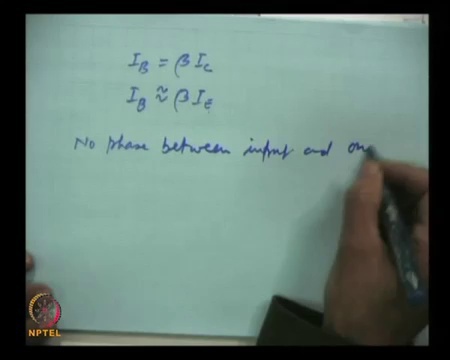 I_B = β I_C
I_B ≈ β I_E
No phase between input and ou
NPTEL